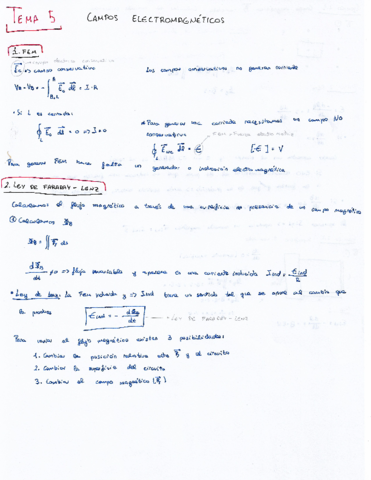 TEMA 5 CAMPOS ELECTROMAGNÉTICOS
1. FEM
E⃗ₑ => campo conservativo Los campos conservativos no generan corriente
V_A - V_B = - ∫ E⃗ₑ dl⃗ = I · R
• Si L es cerrado:
∮_L E⃗ₑ dl⃗ = 0 => I = 0
* Para generar una corriente necesitamos un campo NO
conservativo
∮_L E⃗ dl⃗ = ε [ε] = V
Para generar FEM hace falta un generador o inducción electromagnética
2. LEY DE FARADAY - LENZ
Calculamos el flujo magnético a través de una superficie en presencia de un campo magnético
Calculamos Φ_B
Φ_B = ∬ B⃗ ds
dΦ_B/dt ≠ 0 => flujo variable y aparece una corriente inducida I ind = ε ind/R
* Ley de Lenz: La Fem inducida y => I ind tiene un sentido tal que se opone al cambio que
la produce ε ind = - dΦ_B/dt → LEY DE FARADAY - LENZ
Para variar el flujo magnético existen 3 posibilidades:
1. Cambiar la posición relativa entre B⃗ y el circuito
2. Cambiar la superficie del circuito
3. Cambiar el campo magnético (B⃗)